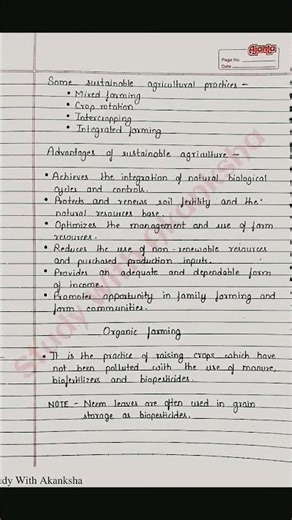 Ajanta
Page No.
Date
Some sustainable agricultural practices -
• Mixed farming
• Crop rotation
• Intercropping
• Integrated farming
Advantages of sustainable agriculture -
• Achieves the integration of natural biological
cycles and controls.
• Protects and renews soil fertility and the
natural resources base.
• Optimizes the management and use of farm
resources.
• Reduces the use of non-renewable resources
and purchased production inputs.
• Provides an adequate and dependable farm
of income.
• Promotes opportunity in family farming and
farm communities.
Organic farming
• It is the practice of raising crops which have
not been polluted with the use of manure,
biofertilizers and biopesticides.
NOTE - Neem leaves are often used in grain
storage as biopesticides.
Study With Akanksha
dy With Akanksha